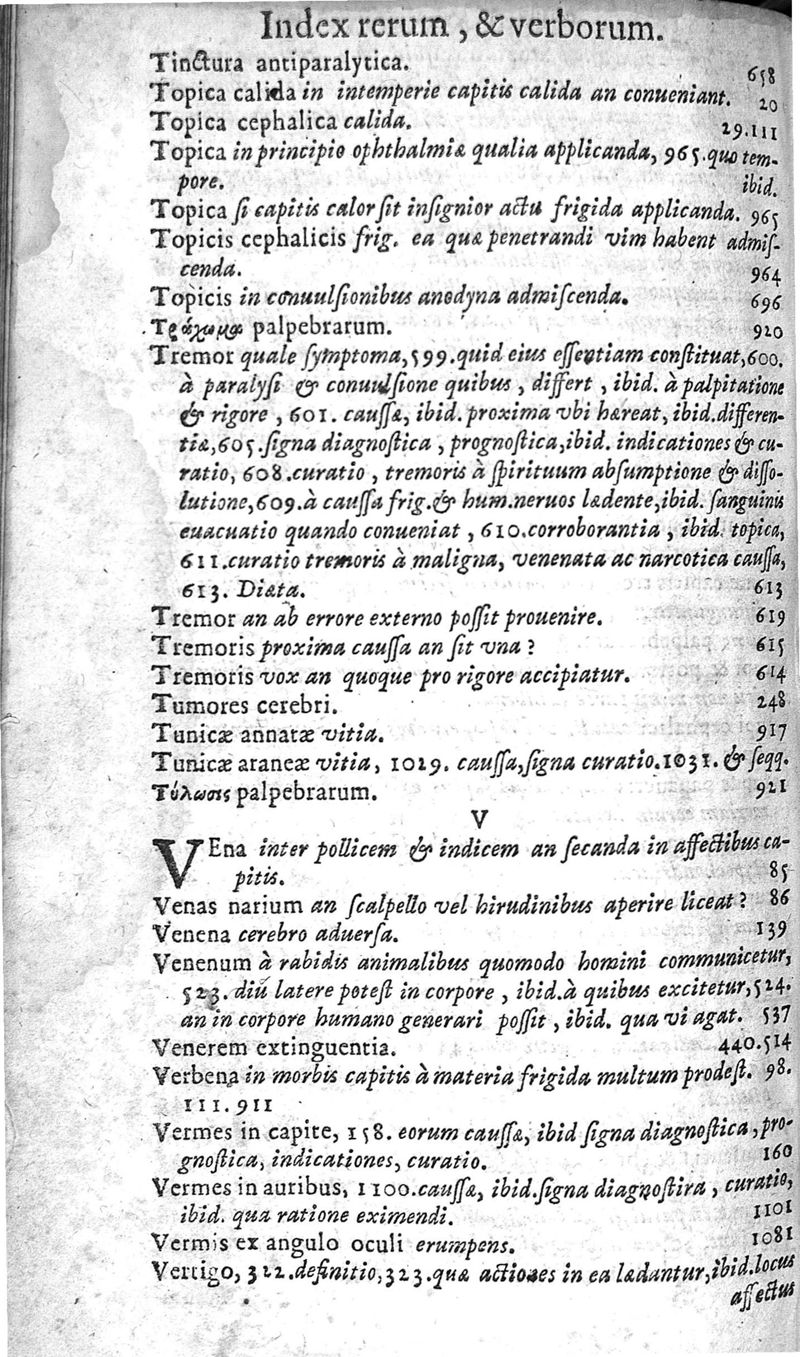 Index rerum, & verborum.
Tinctura antiparalytica. 658
Topica calida in intemperie capitis calida an conueniant. 20
Topica cephalica calida. 29.111
Topica in principio ophthalmiæ qualia applicanda, 965. quo tem-
pore. ibid.
Topica ſi capitis calor ſit inſignior actu frigida applicanda. 965
Topicis cephalicis frig. ea quæ penetrandi vim habent admiſ-
cenda. 964
Topicis in conuulſionibus anodyna admiſcenda. 696
Τράχωμα palpebrarum. 920
Tremor quale ſymptoma, 599. quid eius eſſentiam conſtituat, 600.
à paralyſi & conuulſione quibus, differt, ibid. à palpitatione
& rigore, 601. cauſſæ, ibid. proxima vbi hæreat, ibid. differen-
tiæ, 605. ſigna diagnoſtica, prognoſtica, ibid. indicationes & cu-
ratio, 608. curatio, tremoris à ſpirituum abſumptione & diſſo-
lutione, 609. à cauſſa frig. & hum. neruos lædente, ibid. ſanguinis
euacuatio quando conueniat, 610. corroborantia, ibid. topica,
611. curatio tremoris à maligna, venenata ac narcotica cauſſa,
613. Diæta. 613
Tremor an ab errore externo poſſit prouenire. 619
Tremoris proxima cauſſa an ſit vna? 615
Tremoris vox an quoque pro rigore accipiatur. 614
Tumores cerebri. 248
Tunicæ annatæ vitia. 917
Tunicæ araneæ vitia, 1029. cauſſa, ſigna curatio. 1031. & ſeqq.
Τύλωσις palpebrarum. 921
V
VEna inter pollicem & indicem an ſecanda in affectibus ca-
pitis. 85
Venas narium an ſcalpello vel hirudinibus aperire liceat? 86
Venena cerebro aduerſa. 139
Venenum à rabidis animalibus quomodo homini communicetur,
523. diu latere poteſt in corpore, ibid. à quibus excitetur, 524.
an in corpore humano generari poſſit, ibid. qua vi agat. 537
Venerem extinguentia. 440.514
Verbena in morbis capitis à materia frigida multum prodeſt. 98.
111. 911
Vermes in capite, 158. eorum cauſſæ, ibid ſigna diagnoſtica, pro-
gnoſtica, indicationes, curatio. 160
Vermes in auribus, 1100. cauſſæ, ibid. ſigna diagnoſtira, curatio,
ibid. qua ratione eximendi. 1101
Vermis ex angulo oculi erumpens. 1081
Vertigo, 322. definitio, 323. quæ actiones in ea lædantur, ibid. locus
affectus